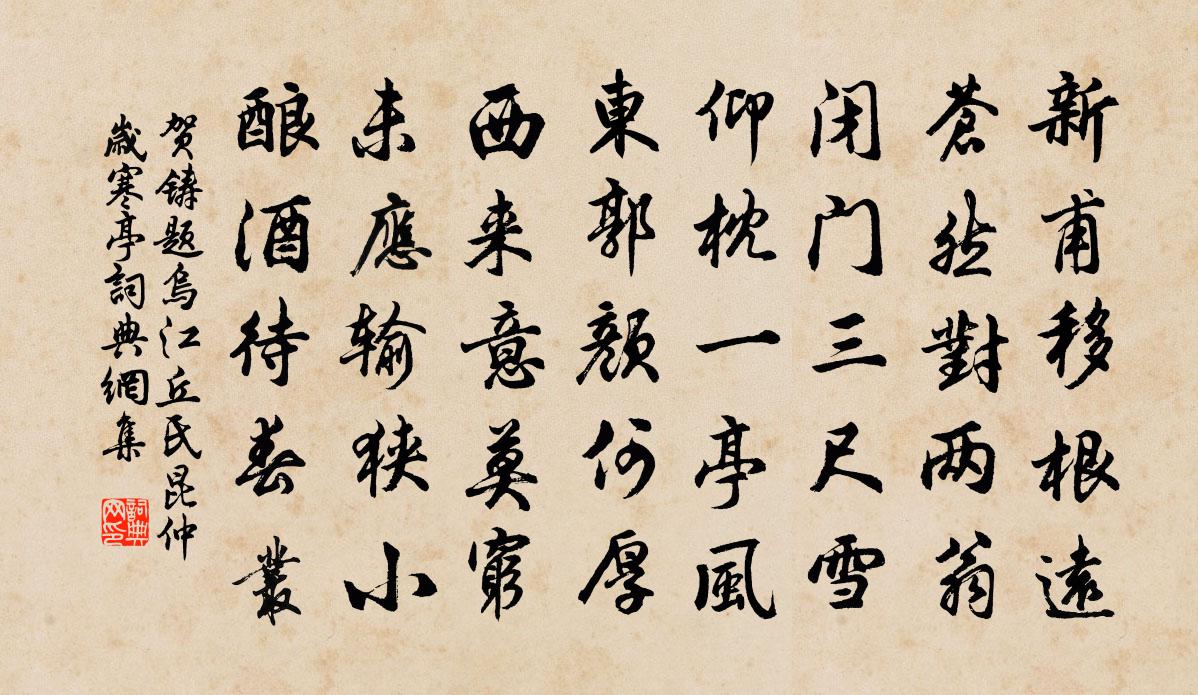 新甫移根遠
蒼然對两翁
闭门三尺雪
仰枕一亭風
東郭顔何厚
西来意莫窮
未應输狭小
酿酒待春叢
贺鑄题烏江丘氏昆仲
歲寒亭詞典網集
詞典网印